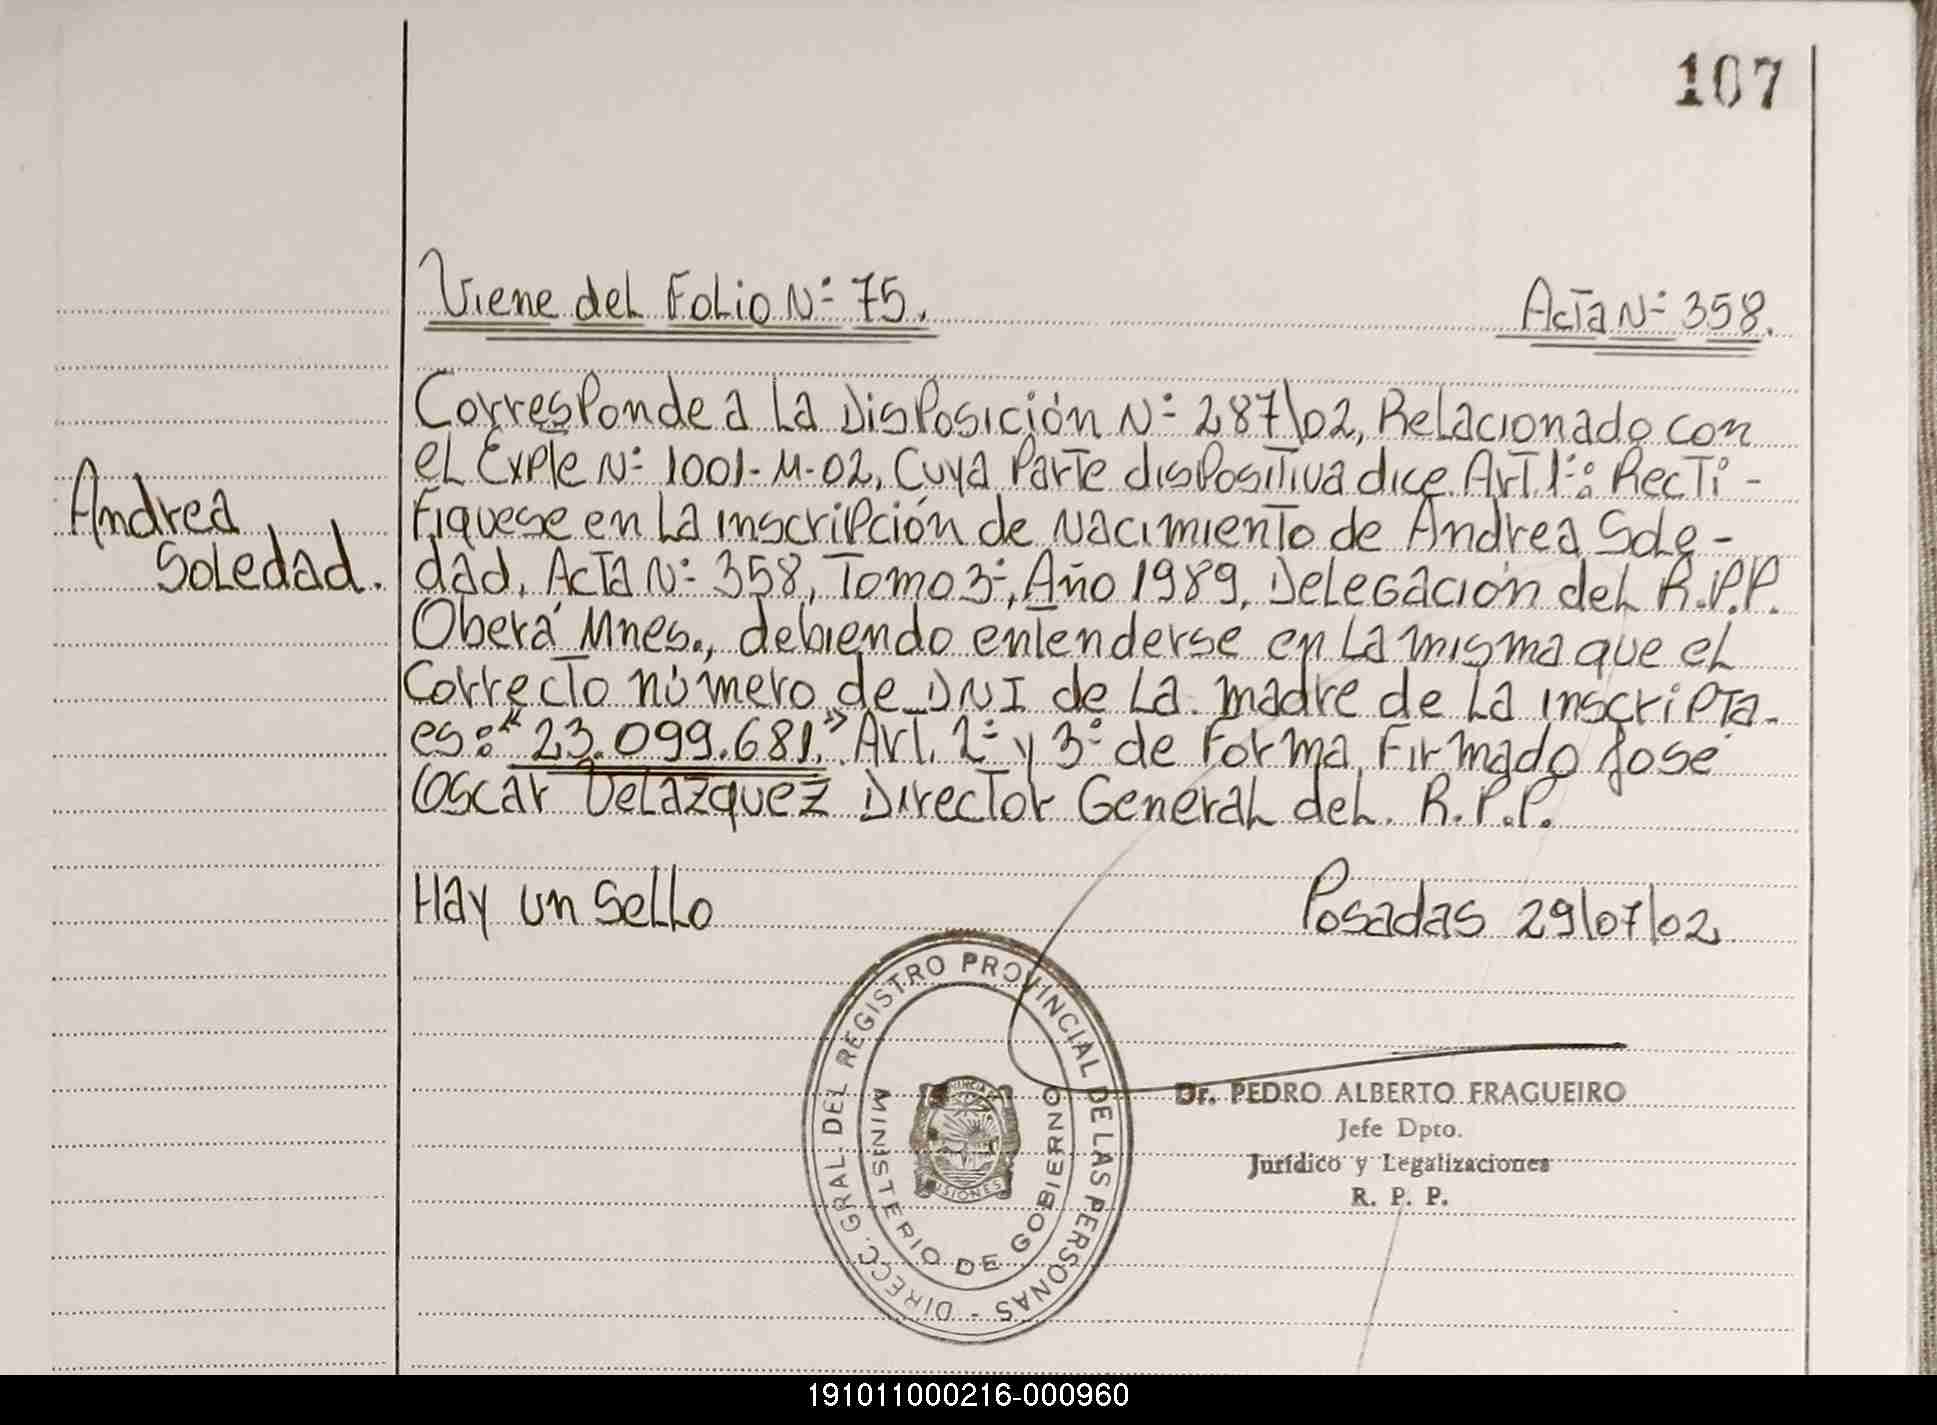 107
Viene del Folio Nº 75.
Acta Nº 358.
Corresponde a la Disposición Nº 287/02, Relacionado con
el Expte Nº 1001-M-02, Cuya Parte dispositiva dice. Art. 1º: Recti-
Andrea
fíquese en la inscripción de Nacimiento de Andrea Sole-
Soledad.
dad, Acta Nº 358, Tomo 3º, Año 1989, Delegación del R.P.P.
Oberá Mnes., debiendo entenderse en la misma que el
Correcto número de DNI de la madre de la inscripta
es: "23.099.681." Art. 2º y 3º de Forma, Firmado José
Oscar Velazquez Director General del R.P.P.
Hay un Sello
Posadas 29/07/02
DIRECC. GRAL DEL REGISTRO PROVINCIAL DE LAS PERSONAS -
MINISTERIO DE GOBIERNO
Dr. PEDRO ALBERTO FRAGUEIRO
Jefe Dpto.
Jurídico y Legalizaciones
R. P. P.
191011000216-000960